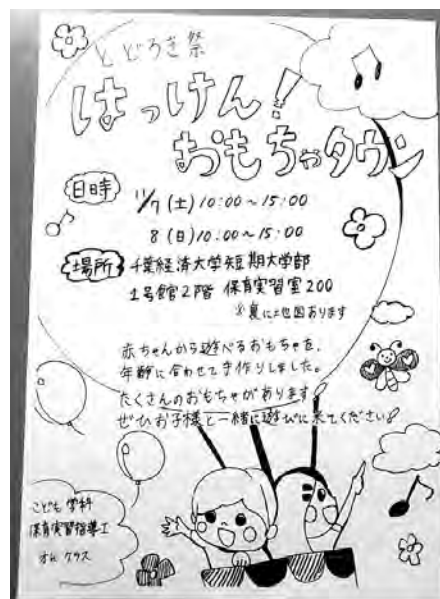 とどろき祭
はっけん!
おもちゃタウン
日時
11/7(土)10:00~15:00
8(日)10:00~15:00
場所
千葉経済大学短期大学部
1号館2階 保育実習室200
※裏に地図あります
赤ちゃんから遊べるおもちゃを、
年齢に合わせて手作りしました。
たくさんのおもちゃがあります!
ぜひお子様と一緒に遊びに来てください!
こども学科
保育実習指導I
クラス